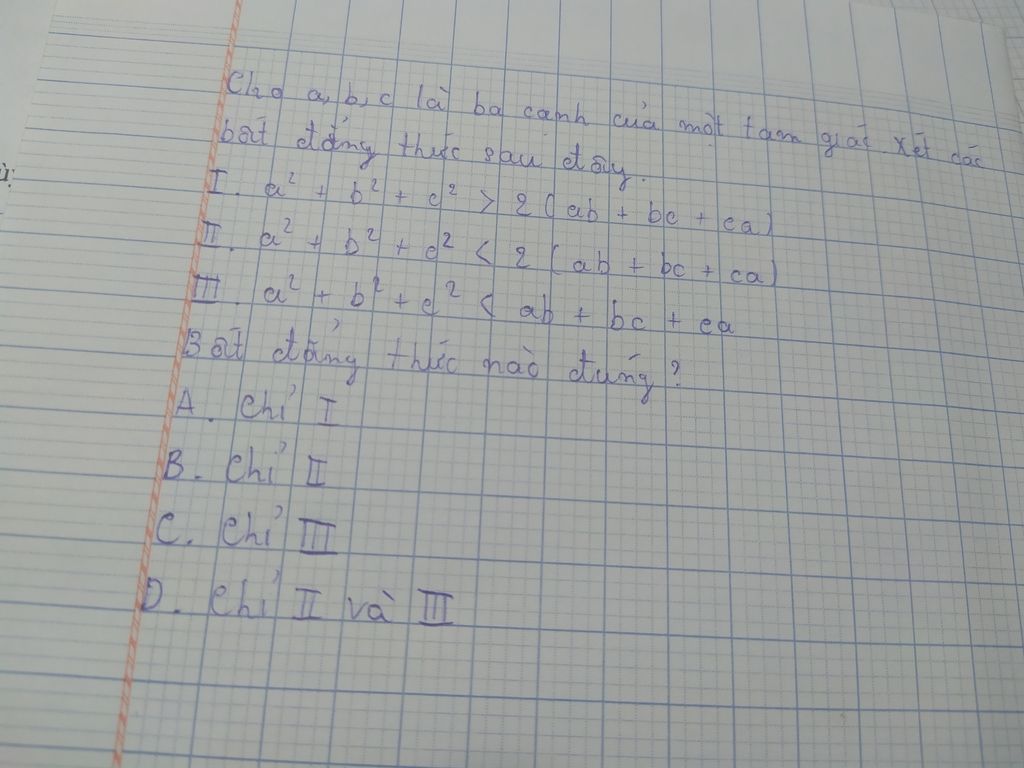 Cho a, b, c là ba cạnh của một tam giác xét các
bất đẳng thức sau đây.
I. a² + b² + c² > 2 (ab + bc + ca)
II. a² + b² + c² < 2 (ab + bc + ca)
III. a² + b² + c² < ab + bc + ca
Bất đẳng thức nào đúng?
A. Chỉ I
B. Chỉ II
C. Chỉ III
D. Chỉ II và III